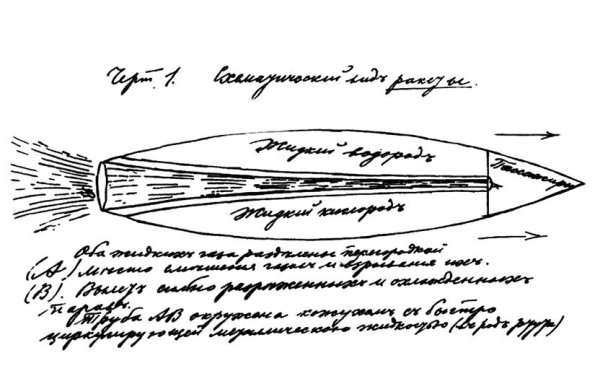 Черт. 1. Схематическiй видъ ракеты.
Жидкiй водородъ
Пассажиры
Жидкiй кислородъ
Оба жидкихъ газа раздѣлены перегородкой
(А.) Мѣсто смѣшенiя газовъ и взрыванiя ихъ.
(В). Вылетъ сильно разрѣженныхъ и охлажденныхъ
паровъ.
Труба АВ окружена кожухомъ съ быстро
циркулирующей металлической жидкостью (въ родѣ ртути)